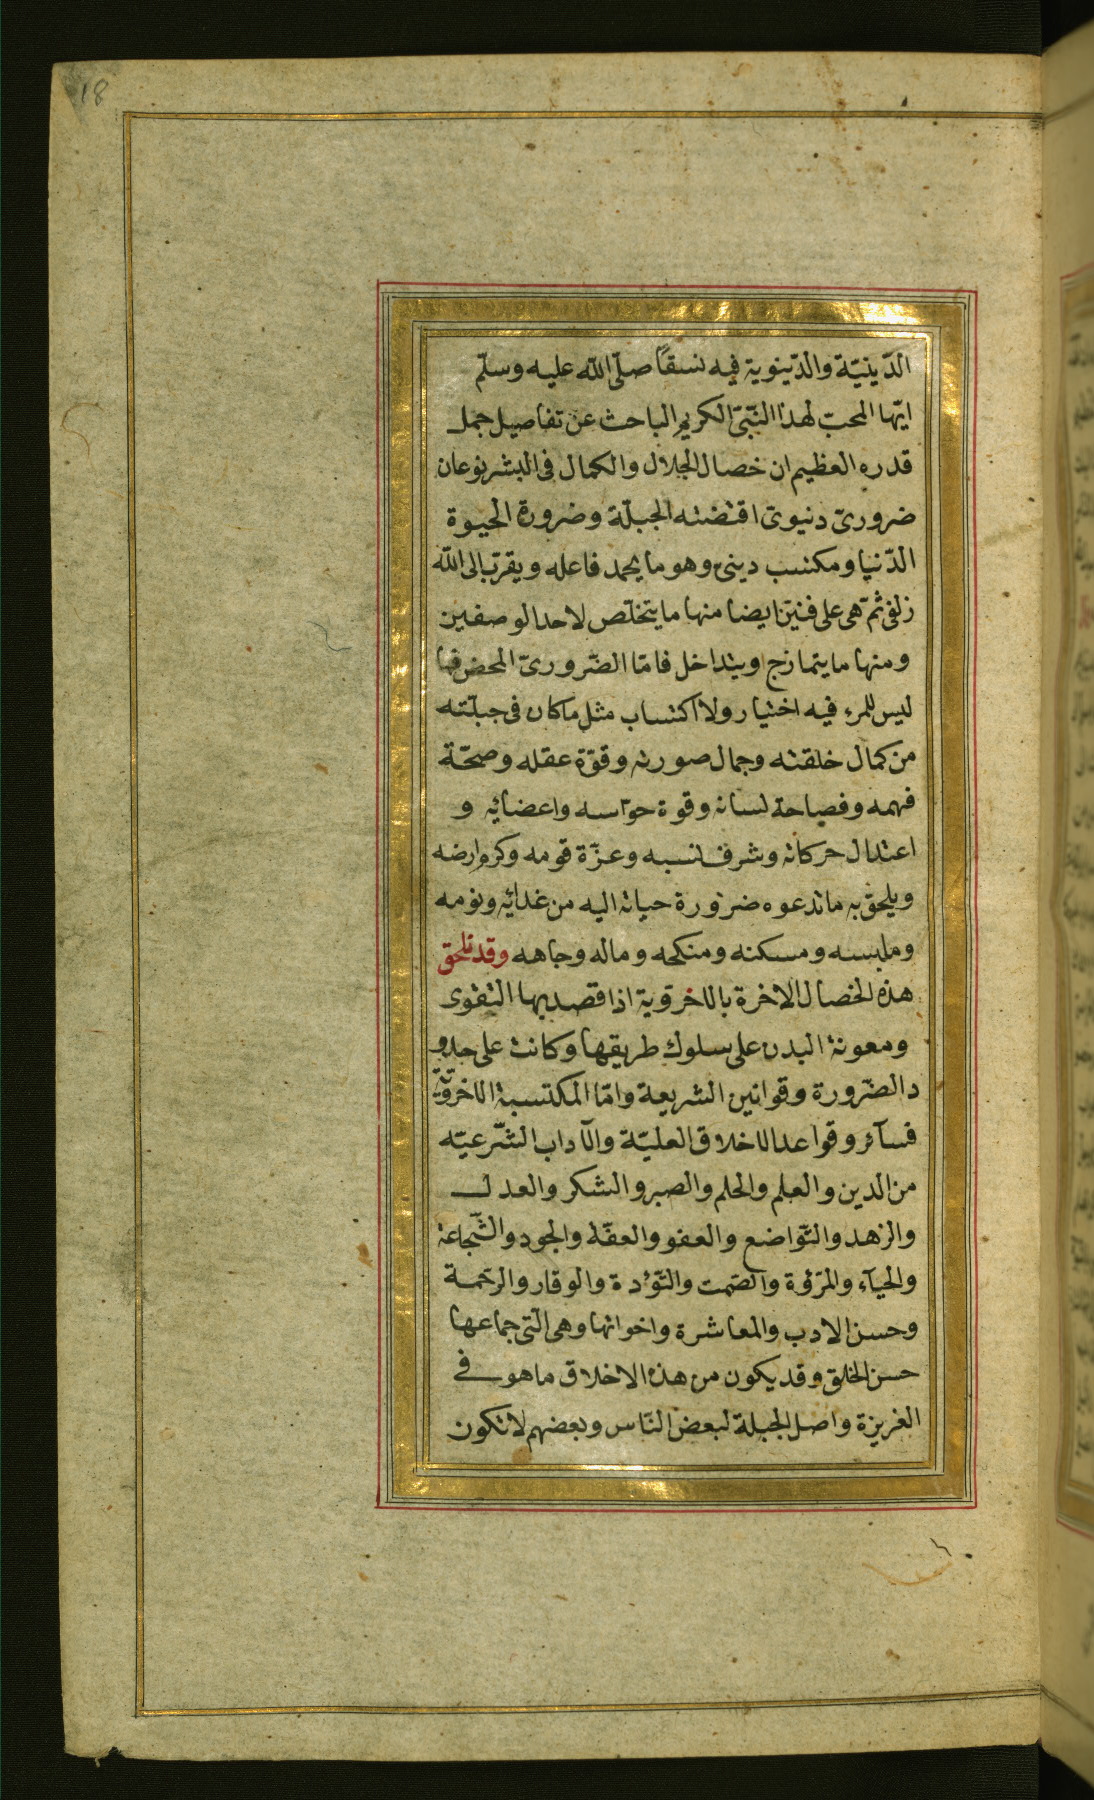 18
الدّينيّة والدّينوية فيه نسقًا صلّى الله عليه وسلّم
ايّها المحبّ لهذا النّبىّ الكريم الباحث عن تفاصيل جمل
قدره العظيم ان خصال الجلال والكمال فى البشر نوعان
ضرورىّ دنيوىّ اقتضته الجبلّة وضرورة الحيوة
الدّنيا ومكتسب دينىّ وهو ما يحمد فاعله ويقرّب الى الله
زلفى ثمّ هى على فنيّن ايضا منها ما يتخلّص لاحد الوصفين
ومنها ما يتمازج ويتداخل فامّا الضّرورىّ المحض فما
ليس للمرء فيه اختيار ولا اكتساب مثل ما كان فى جبلّته
من كمال خلقته وجمال صورته وقوّة عقله وصحّة
فهمه وفصاحة لسانه وقوة حواسه واعضائه و
اعتدال حركاته وشرف نسبه وعزّة قومه وكرم ارضه
ويلحق به ما تدعوه ضرورة حياته اليه من غدائه ونومه
وملبسه ومسكنه ومنكحه وماله وجاهه وقد تلحق
هذه الخصال الاخرة بالاخرويّة اذا قصد بها التقوى
ومعونة البدن على سلوك طريقها وكانت على حدو
د الضّرورة وقوانين الشريعة وامّا المكتسبة الاخرويّة
فسآئر وقواعد الاخلاق العليّة والآداب الشّرعيّه
من الدين والعلم والحلم والصبر والشكر والعدل
والزهد والتّواضع والعفو والعفّة والجود والشّجاعة
والحيآء والمرّوة والصّمت والتّؤدة والوقار والرحمة
وحسن الادب والمعاشرة واخواتها وهى الّتى جماعها
حسن الخلق وقد يكون من هذه الاخلاق ما هو فى
الغريزة واصل الجبلة لبعض النّاس وبعضهم لا تكون